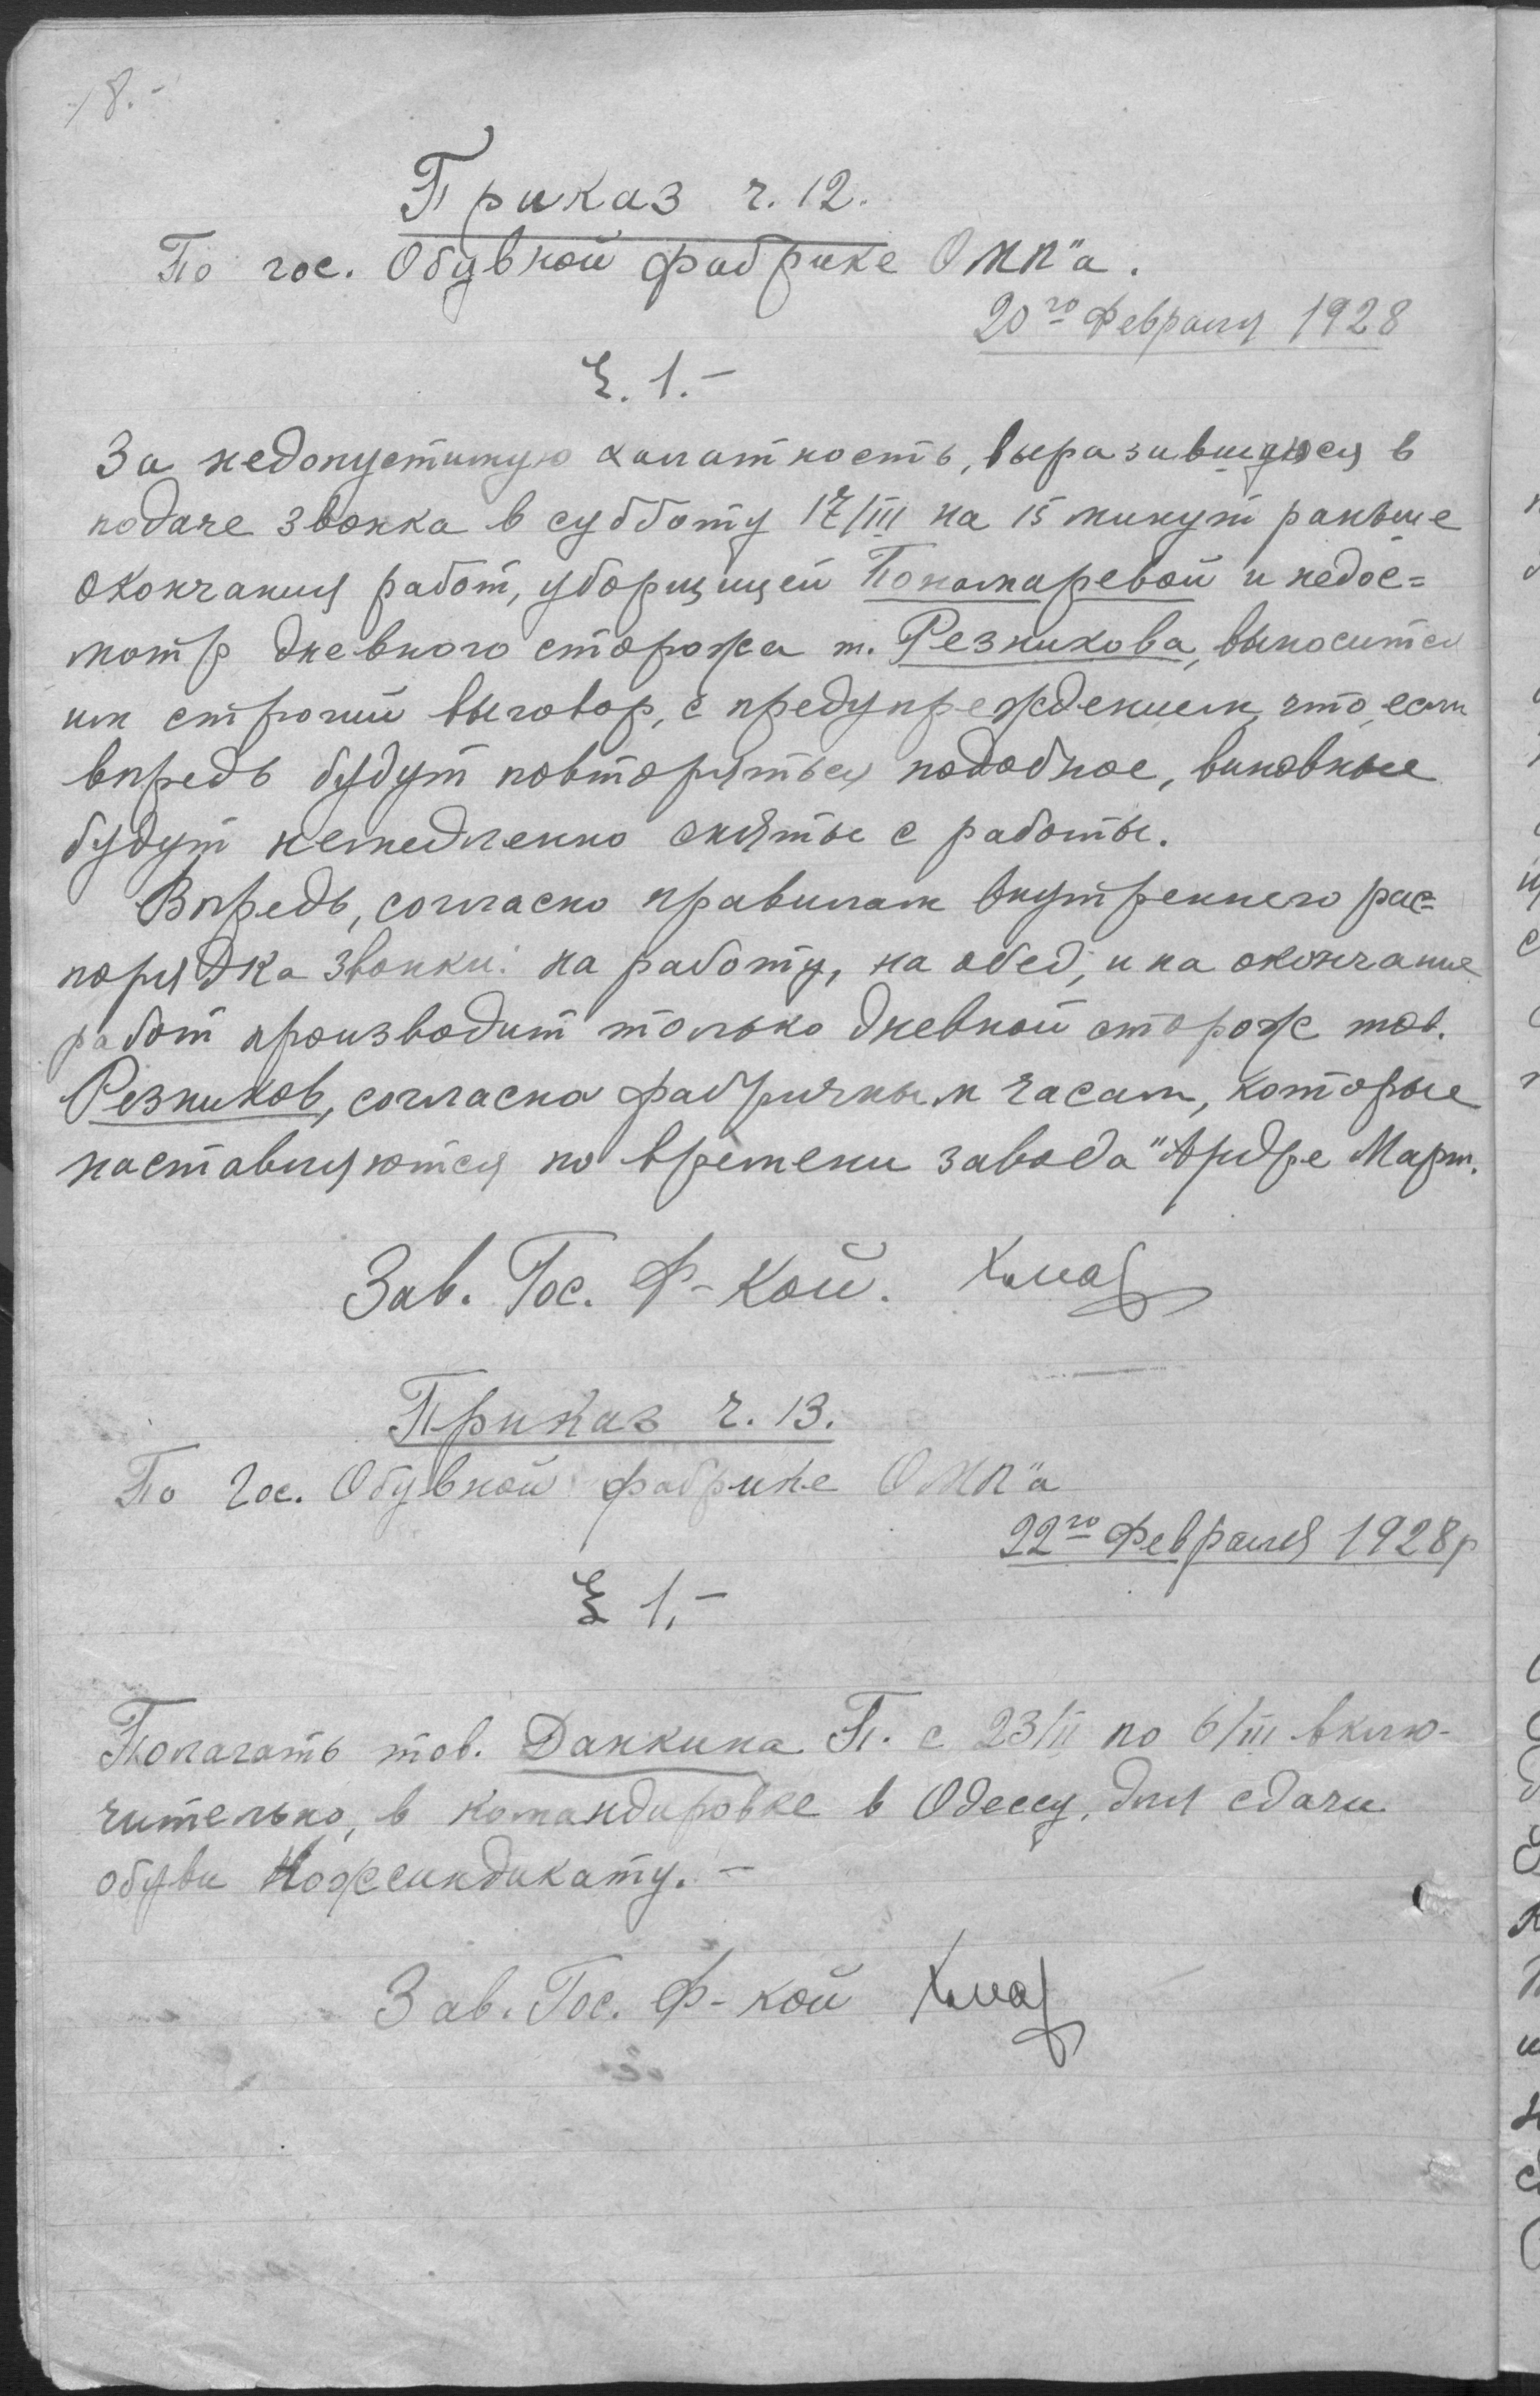 18.-
Приказ ч. 12.
По гос. Обувной фабрике ОМП"а.
20го Февраля 1928
§. 1.-
За недопустимую халатность, выразившуюся в
подаче звонка в субботу 17/III на 15 минут раньше
окончания работ, уборщицей Пономаревой и недос=
мотр дневного сторожа т. Резникова, выносится
им строгий выговор, с предупреждением, что, если
впредь будут повторяться подобное, виновные
будут немедленно сняты с работы.
Впредь, согласно правилам внутреннего рас=
порядка звонки: на работу, на обед, и на окончание
работ производит только дневной сторож тов.
Резников, согласно фабричным часам, которые
наставляются по времени завода "Андре Март.
Зав. Гос. Ф-кой.
Приказ ч. 13.
По Гос. Обувной фабрике ОМП"а
22го Февраля 1928р
§ 1.-
Полагать тов. Данкина П. с 23/II по 6/III вклю-
чительно, в командировке в Одессу, для сдачи
обуви Кожсиндикату. -
Зав. Гос. Ф-кой